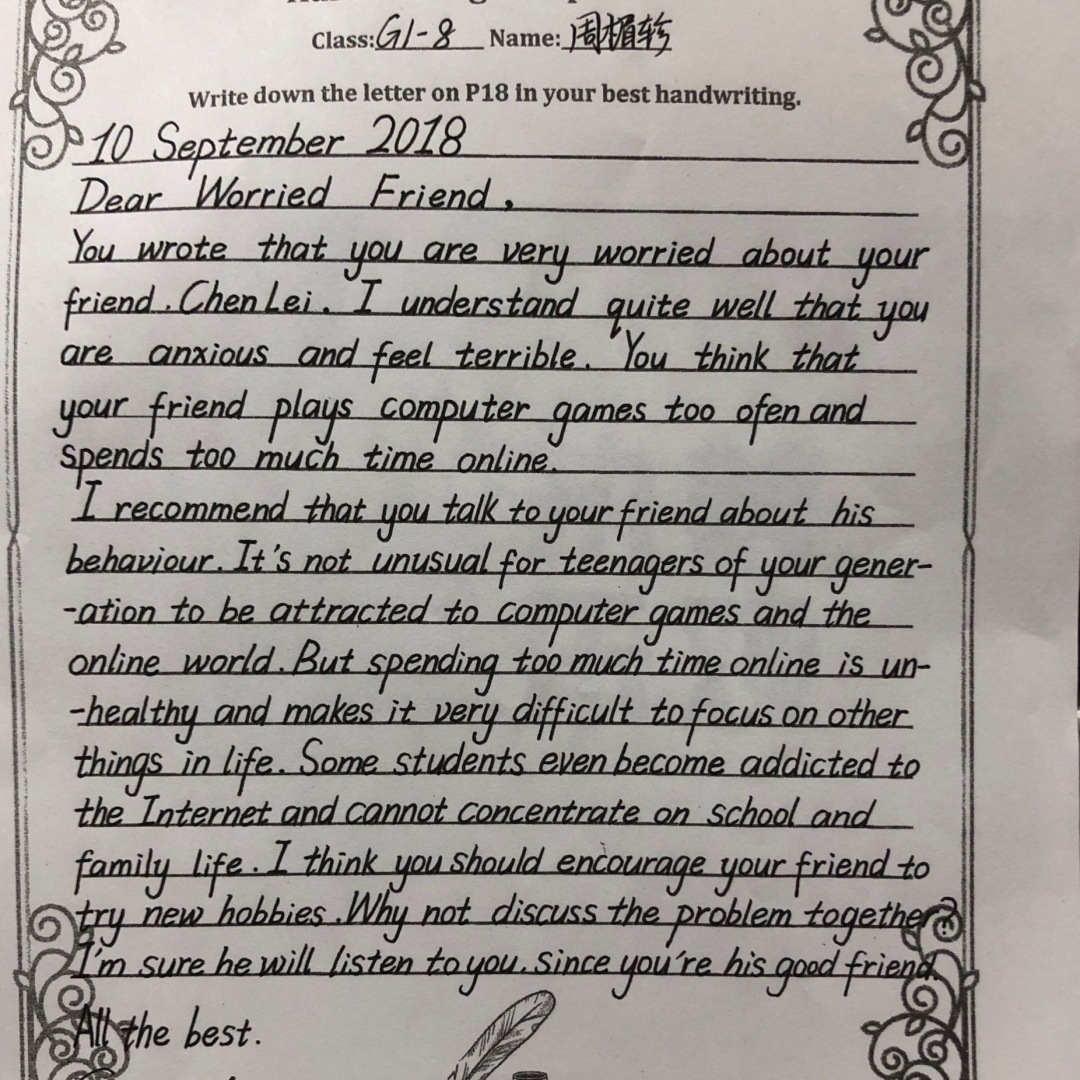 Class: G1-8 Name: 周楣轸
Write down the letter on P18 in your best handwriting.
10 September 2018
Dear Worried Friend,
You wrote that you are very worried about your
friend. Chen Lei. I understand quite well that you
are anxious and feel terrible. You think that
your friend plays computer games too ofen and
spends too much time online.
I recommend that you talk to your friend about his
behaviour. It's not unusual for teenagers of your gener-
-ation to be attracted to computer games and the
online world. But spending too much time online is un-
-healthy and makes it very difficult to focus on other
things in life. Some students even become addicted to
the Internet and cannot concentrate on school and
family life. I think you should encourage your friend to
try new hobbies. Why not discuss the problem together?
I'm sure he will listen to you. since you're his good friend.
All the best.